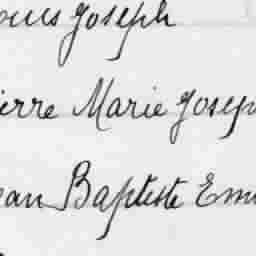 ouis Joseph
ierre Marie Josep
ean Baptiste Em